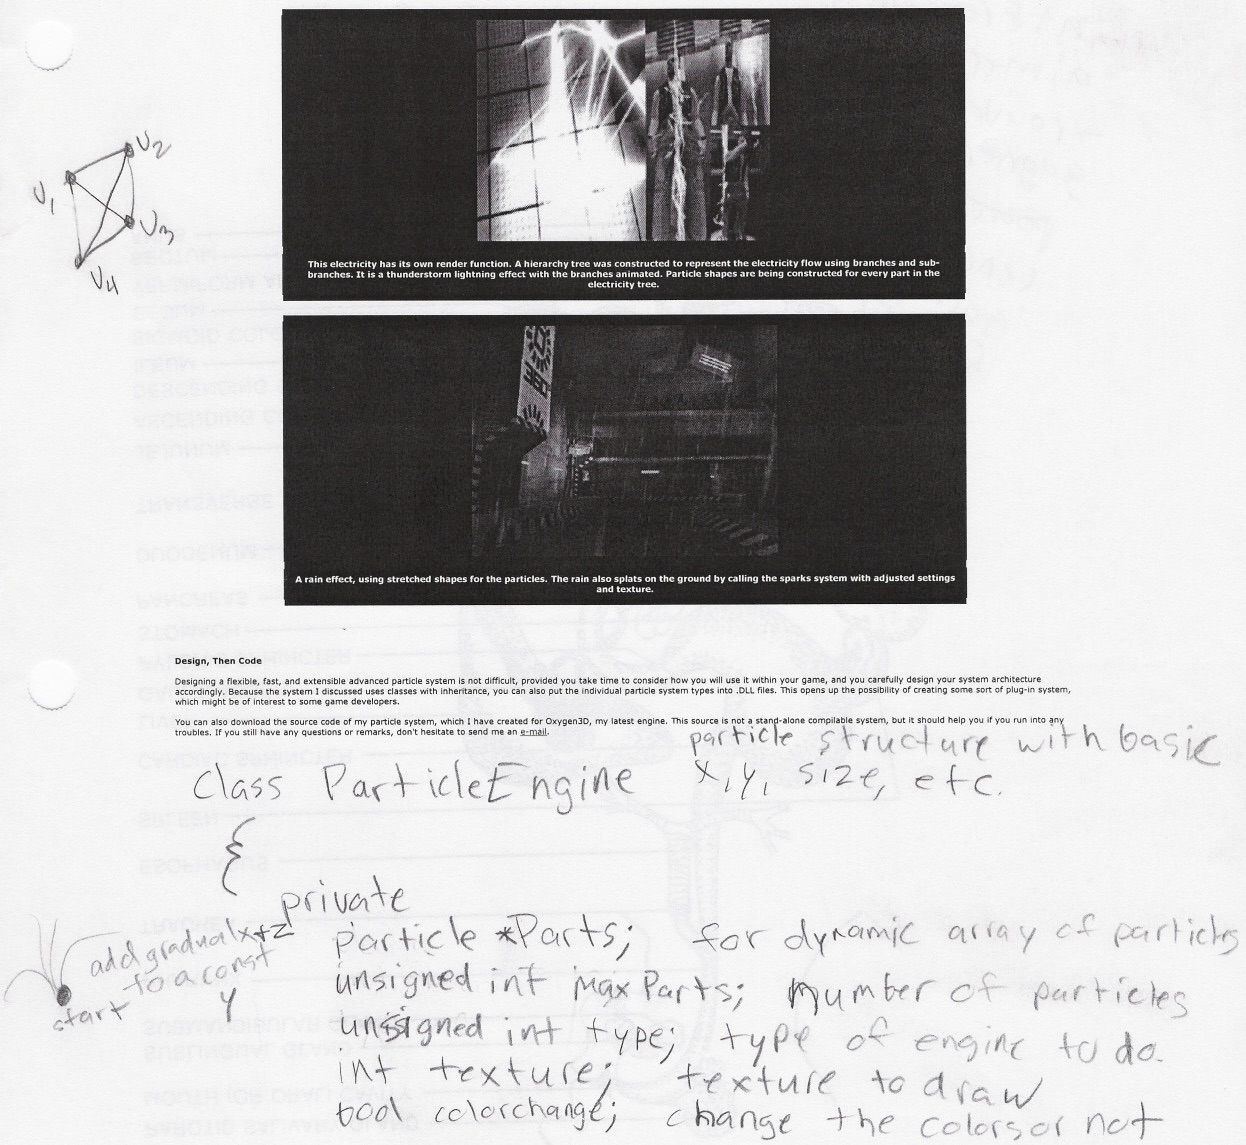 V2
V1
V3
V4
This electricity has its own render function. A hierarchy tree was constructed to represent the electricity flow using branches and sub-
branches. It is a thunderstorm lightning effect with the branches animated. Particle shapes are being constructed for every part in the
electricity tree.
A rain effect, using stretched shapes for the particles. The rain also splats on the ground by calling the sparks system with adjusted settings
and texture.
Design, Then Code
Designing a flexible, fast, and extensible advanced particle system is not difficult, provided you take time to consider how you will use it within your game, and you carefully design your system architecture
accordingly. Because the system I discussed uses classes with inheritance, you can also put the individual particle system types into .DLL files. This opens up the possibility of creating some sort of plug-in system,
which might be of interest to some game developers.
You can also download the source code of my particle system, which I have created for Oxygen3D, my latest engine. This source is not a stand-alone compilable system, but it should help you if you run into any
troubles. If you still have any questions or remarks, don't hesitate to send me an e-mail.
particle structure with basic
x, y, size, etc.
class ParticleEngine
{
private
particle *Parts; for dynamic array of particles
unsigned int MaxParts; number of particles
unsigned int type; type of engine to do.
int texture; texture to draw
bool colorchange; change the colors or not
add gradual x+z
to a const
y
start
STOMACH
PANCREAS
DUODENUM
TRANSVERSE
JEJUNUM
ASCENDING CO
DESCENDING
ILEUM
SIGMOID COLO
CARDIAC SPHINCTER
SPLEEN
ESOPHAGUS